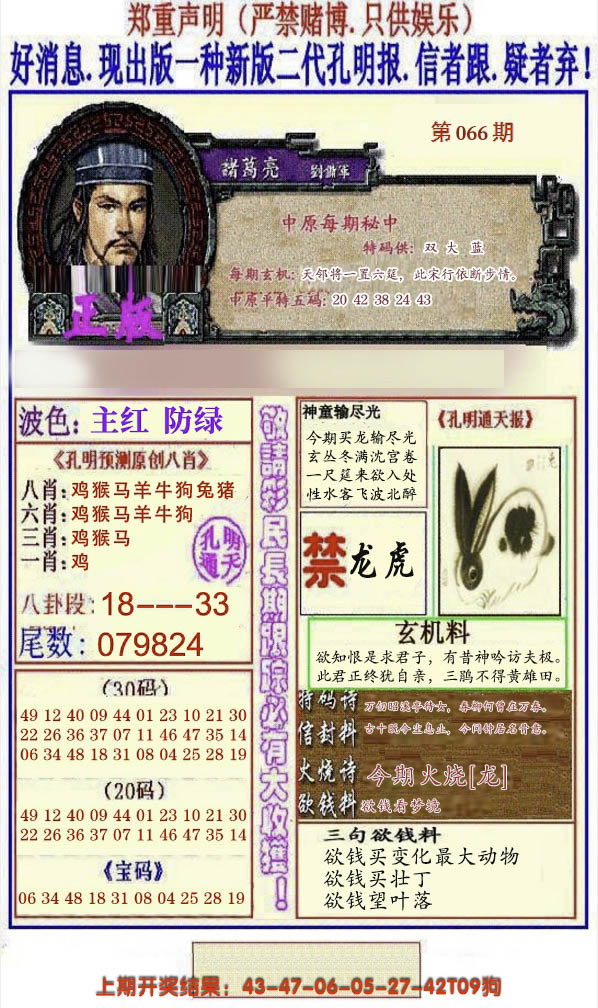 郑重声明（严禁赌博.只供娱乐）
好消息.现出版一种新版二代孔明报.信者跟.疑者弃！
第066期
諸葛亮
中原每期秘中
特码供：双 大 蓝
每期玄机：天邻将一置六筵，此宋行依断步情。
中原平特五码：20 42 38 24 43
正版
波色：主红 防绿
《孔明预测原创八肖》
八肖：鸡猴马羊牛狗兔猪
六肖：鸡猴马羊牛狗
三肖：鸡猴马
一肖：鸡
孔明
通天
八卦段：18---33
尾数：079824
（30码）
49 12 40 09 44 01 23 10 21 30
22 26 36 37 07 11 46 47 35 14
06 34 48 18 31 08 04 25 28 19
（20码）
49 12 40 09 44 01 23 10 21 30
22 26 36 37 07 11 46 47 35 14
《宝码》
06 34 48 18 31 08 04 25 28 19
敬請彩民長期跟踪必有大收獲！
神童输尽光
今期买龙输尽光
玄丛冬满沈宫卷
一尺筵来欲入处
性水客飞波北醉
禁 龙虎
《孔明通天报》
玄机料
欲知恨是求君子，有昔神吟访夫极。
此君正终犹自亲，三鹃不得黄雄田。
特码诗
信封料
火烧诗 今期火烧[龙]
欲钱料 欲钱看梦境
三句欲钱料
欲钱买变化最大动物
欲钱买壮丁
欲钱望叶落
上期开奖结果：43-47-06-05-27-42T09狗